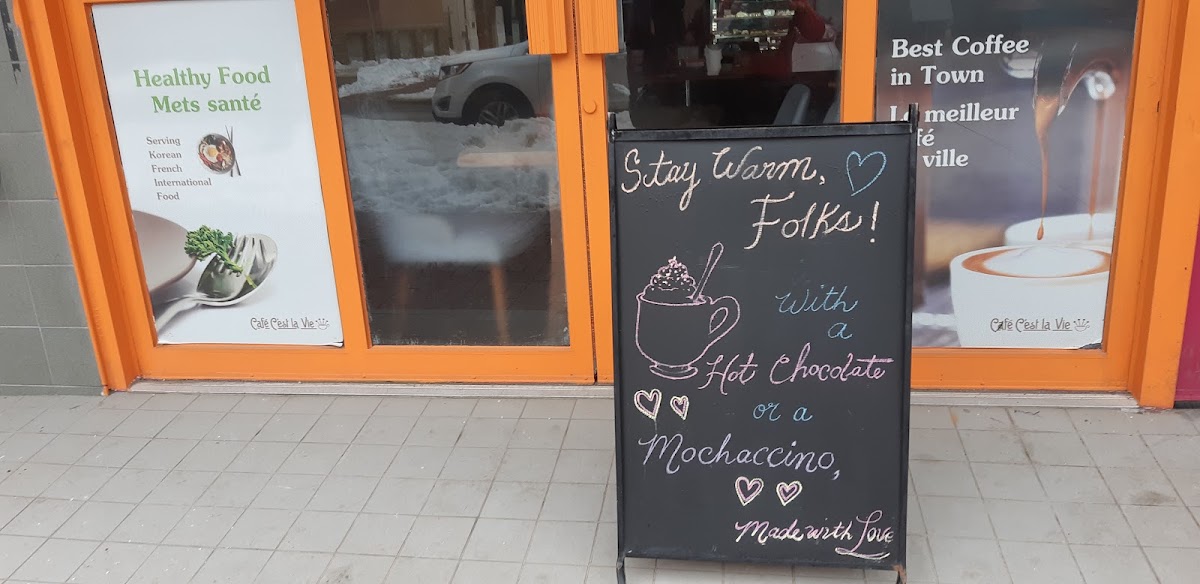 Healthy Food
Mets santé
Serving
Korean
French
International
Food
Café C'est la Vie
Stay Warm,
Folks!
With
a
Hot Chocolate
or a
Mochaccino,
Made with Love
Best Coffee
in Town
meilleur
ville
Café C'est la Vie